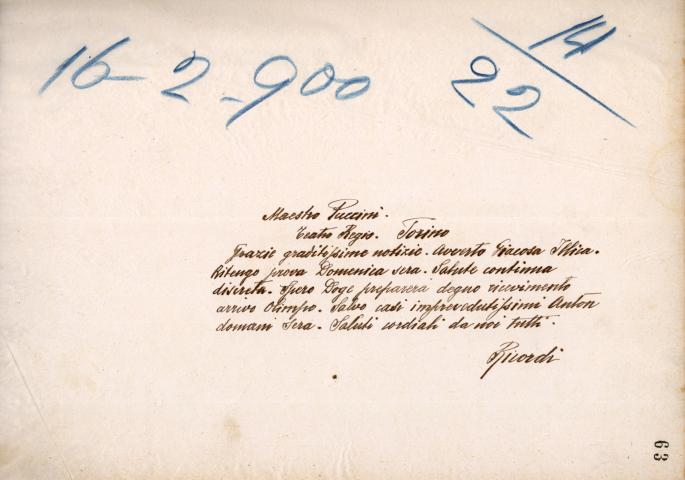 16-2-900
14/22
Maestro Puccini.
Teatro Regio. Torino
Grazie graditissime notizie. Avverto Giacosa Illica.
Ritengo prova Domenica sera. Salute continua
discreta. Spero Doge preparerà degno ricevimento
arrivo Olimpo. Salvo casi imprevedutissimi Anton
domani sera. Saluti cordiali da noi tutti.
Ricordi
63